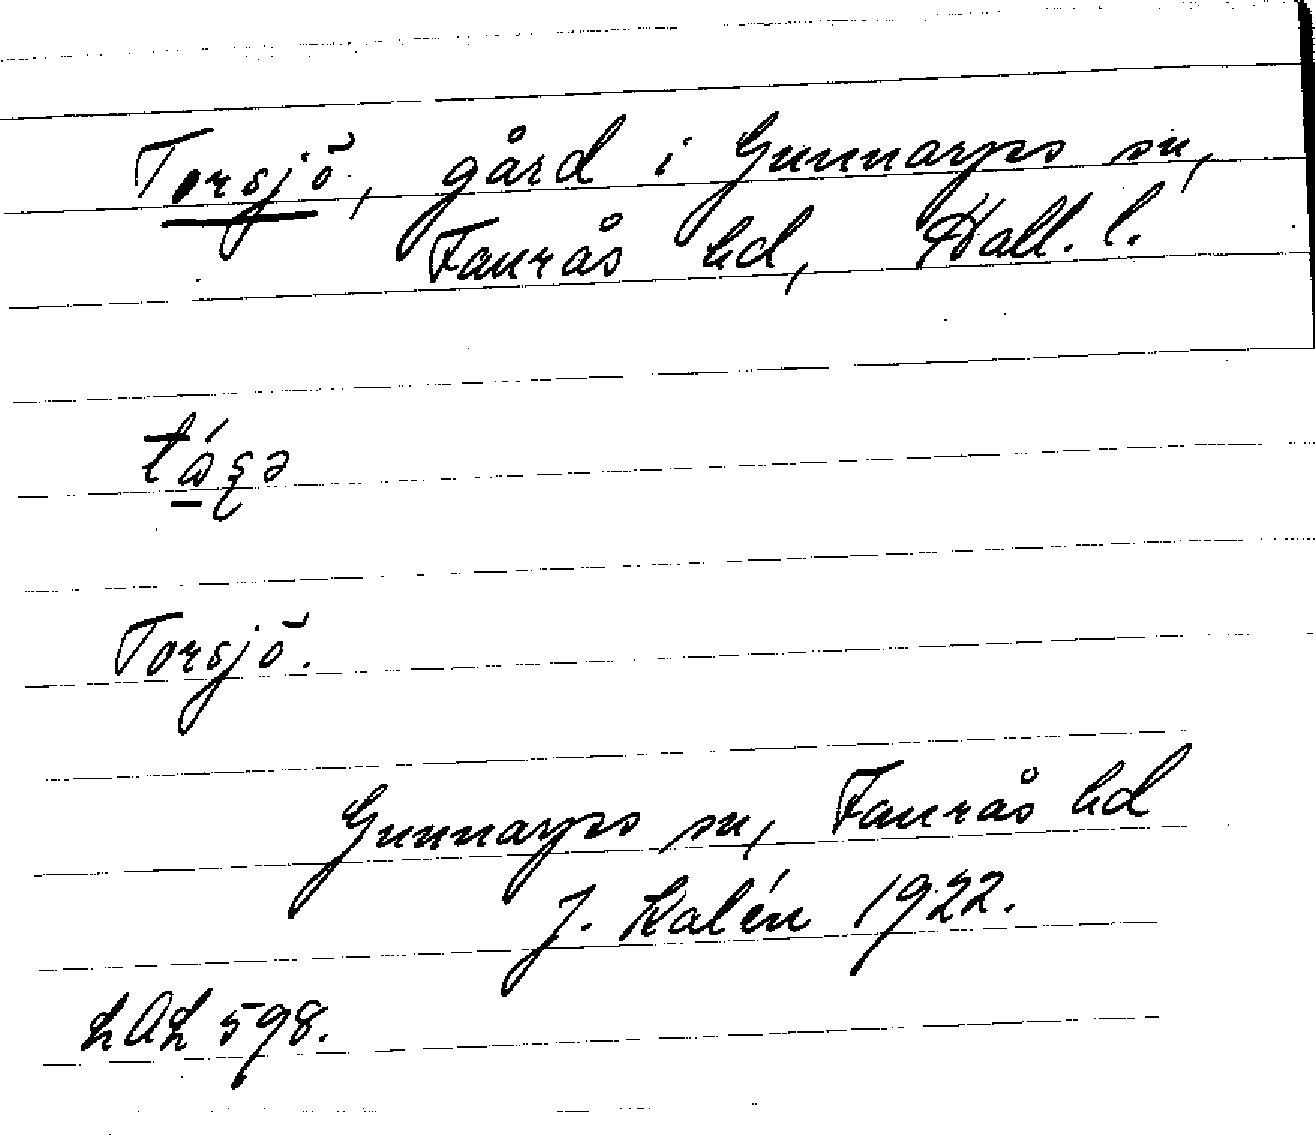 Torsjö, gård i Gunnarps sn,
Faurås hd, Hall. l.
Torsjö.
Gunnarps sn, Faurås hd
J. Kalén 1922.
LAL 598.